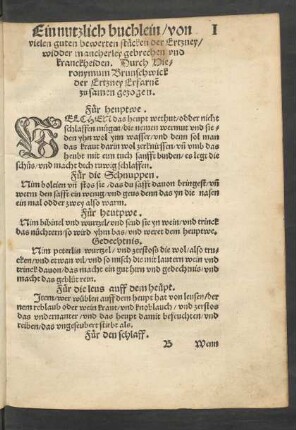 Ein nutzlich buchlein/von
I
vielen guten bewerten stücken der Ertzney/
widder mancherley gebrechen vnd
kranckheiden. Durch Hie-
ronymum Brunschwick
der Ertzney Erfarnē
zusamen gezogen.
Für heuptwe.
WELCHEM das heupt wethut/oder nicht
schlaffen mügen/die nemen wermut vnd sie-
den yhn wol ynn wasser/vnd denn sol man
das kraut darin wol zerknüssen/vñ vmb das
heubt mit eim tuch sanfft binden/es legt die
schüs/vnd macht dich ruwig schlaffen.
Für die Schnuppen.
Nim poleien vñ stos sie/das du safft dauon bringest/vñ
werm den safft ein wenig/vnd geus denn das yn die nasen
ein mal odder zwey also warm.
Für heutpwe.
Nim bibinel vnd wurtzel/vnd seud sie yn wein/vnd trinck
das nüchtern/so wird yhm bas/vnd weret dem heuptwe.
Gedechtnis.
Nim peterlin wurtzel/vnd zerstoss die wol/also tru-
cken/vnd etwan vil/vnd so misch die mit lauterm wein vnd
trinck dauon/das macht ein gut hirn vnd gedechtnis vnd
macht das geblüt rein.
Für die leus auff dem heupt.
Item/wer wüblen auff dem heupt hat von leusen/der
nem reblaub oder wein kraut/vnd knoblauch/vnd zerstos
das vndernander/vnd das heupt damit befeuchten/vnd
reiben/das vngeseubert stirbt als.
Für den schlaff.
B
Wenn